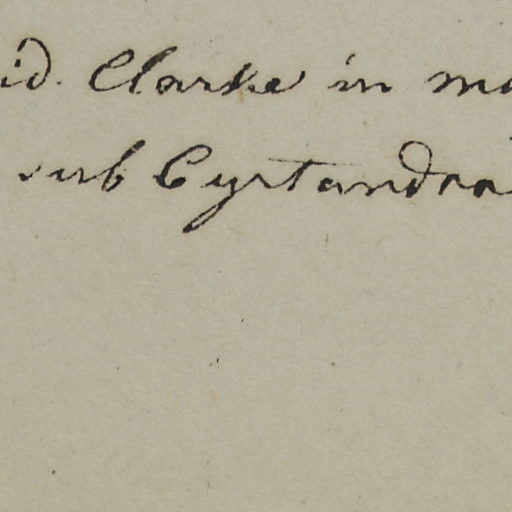 id. Clarke in m
sub Cyrtandra